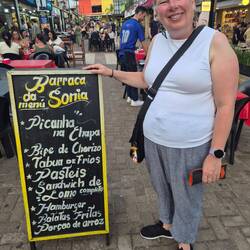 Barraca
da Sonia
menú
Picanha
na Chapa
Bife de Chorizo
Tabua de Frios
Pasteis
Sandwich de
Lomo completo
Hamburger
Batatas Fritas
Porçao de arroz